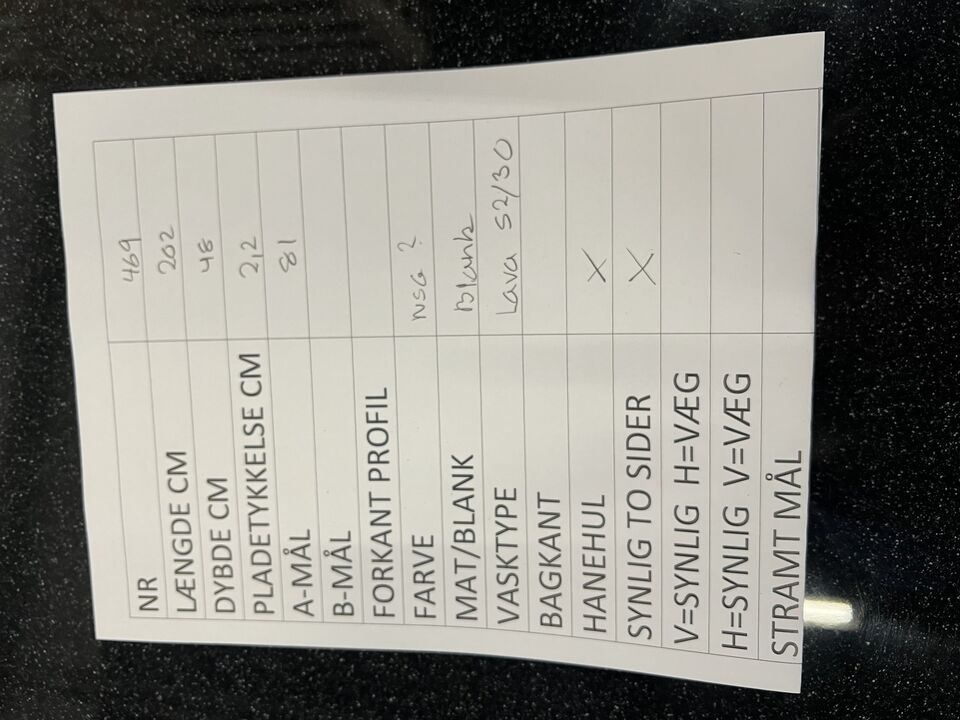 NR 469
LÆNGDE CM 202
DYBDE CM 48
PLADETYKKELSE CM 2,2
A-MÅL 81
B-MÅL
FORKANT PROFIL
FARVE NSG ?
MAT/BLANK Blank
VASKTYPE Lava 52/30
BAGKANT
HANEHUL X
SYNLIG TO SIDER X
V=SYNLIG H=VÆG
H=SYNLIG V=VÆG
STRAMT MÅL